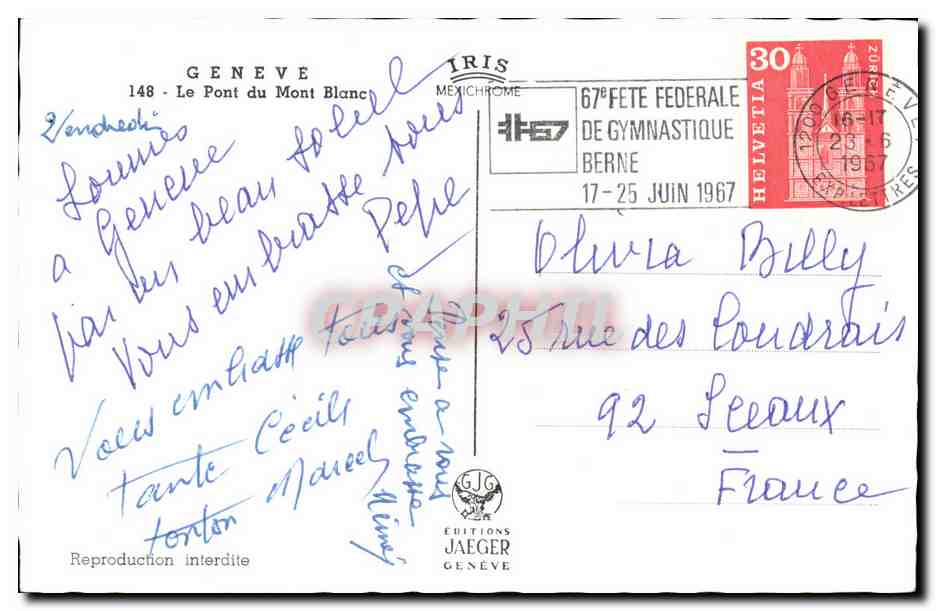 GENEVE
148 - Le Pont du Mont Blanc
IRIS
MEXICHROME
67e FETE FEDERALE
DE GYMNASTIQUE
BERNE
17-25 JUIN 1967
67
30
HELVETIA
ZÜRICH
1200 GENÈVE
16-17
23-6
1967
EXP. LETTRES
Vendredi
Sommes
a Geneve
par un beau soleil
Vous embrasse tous
Pepe
Vous embrasse tous
Tante Cécile
tonton Marcel
Pense a vous
et vous embrasse
Mémé
Olivia Billy
25 rue des Coudrais
92 Sceaux
France
GJG
ÉDITIONS
JAEGER
GENÈVE
Reproduction interdite
CPAPHIL